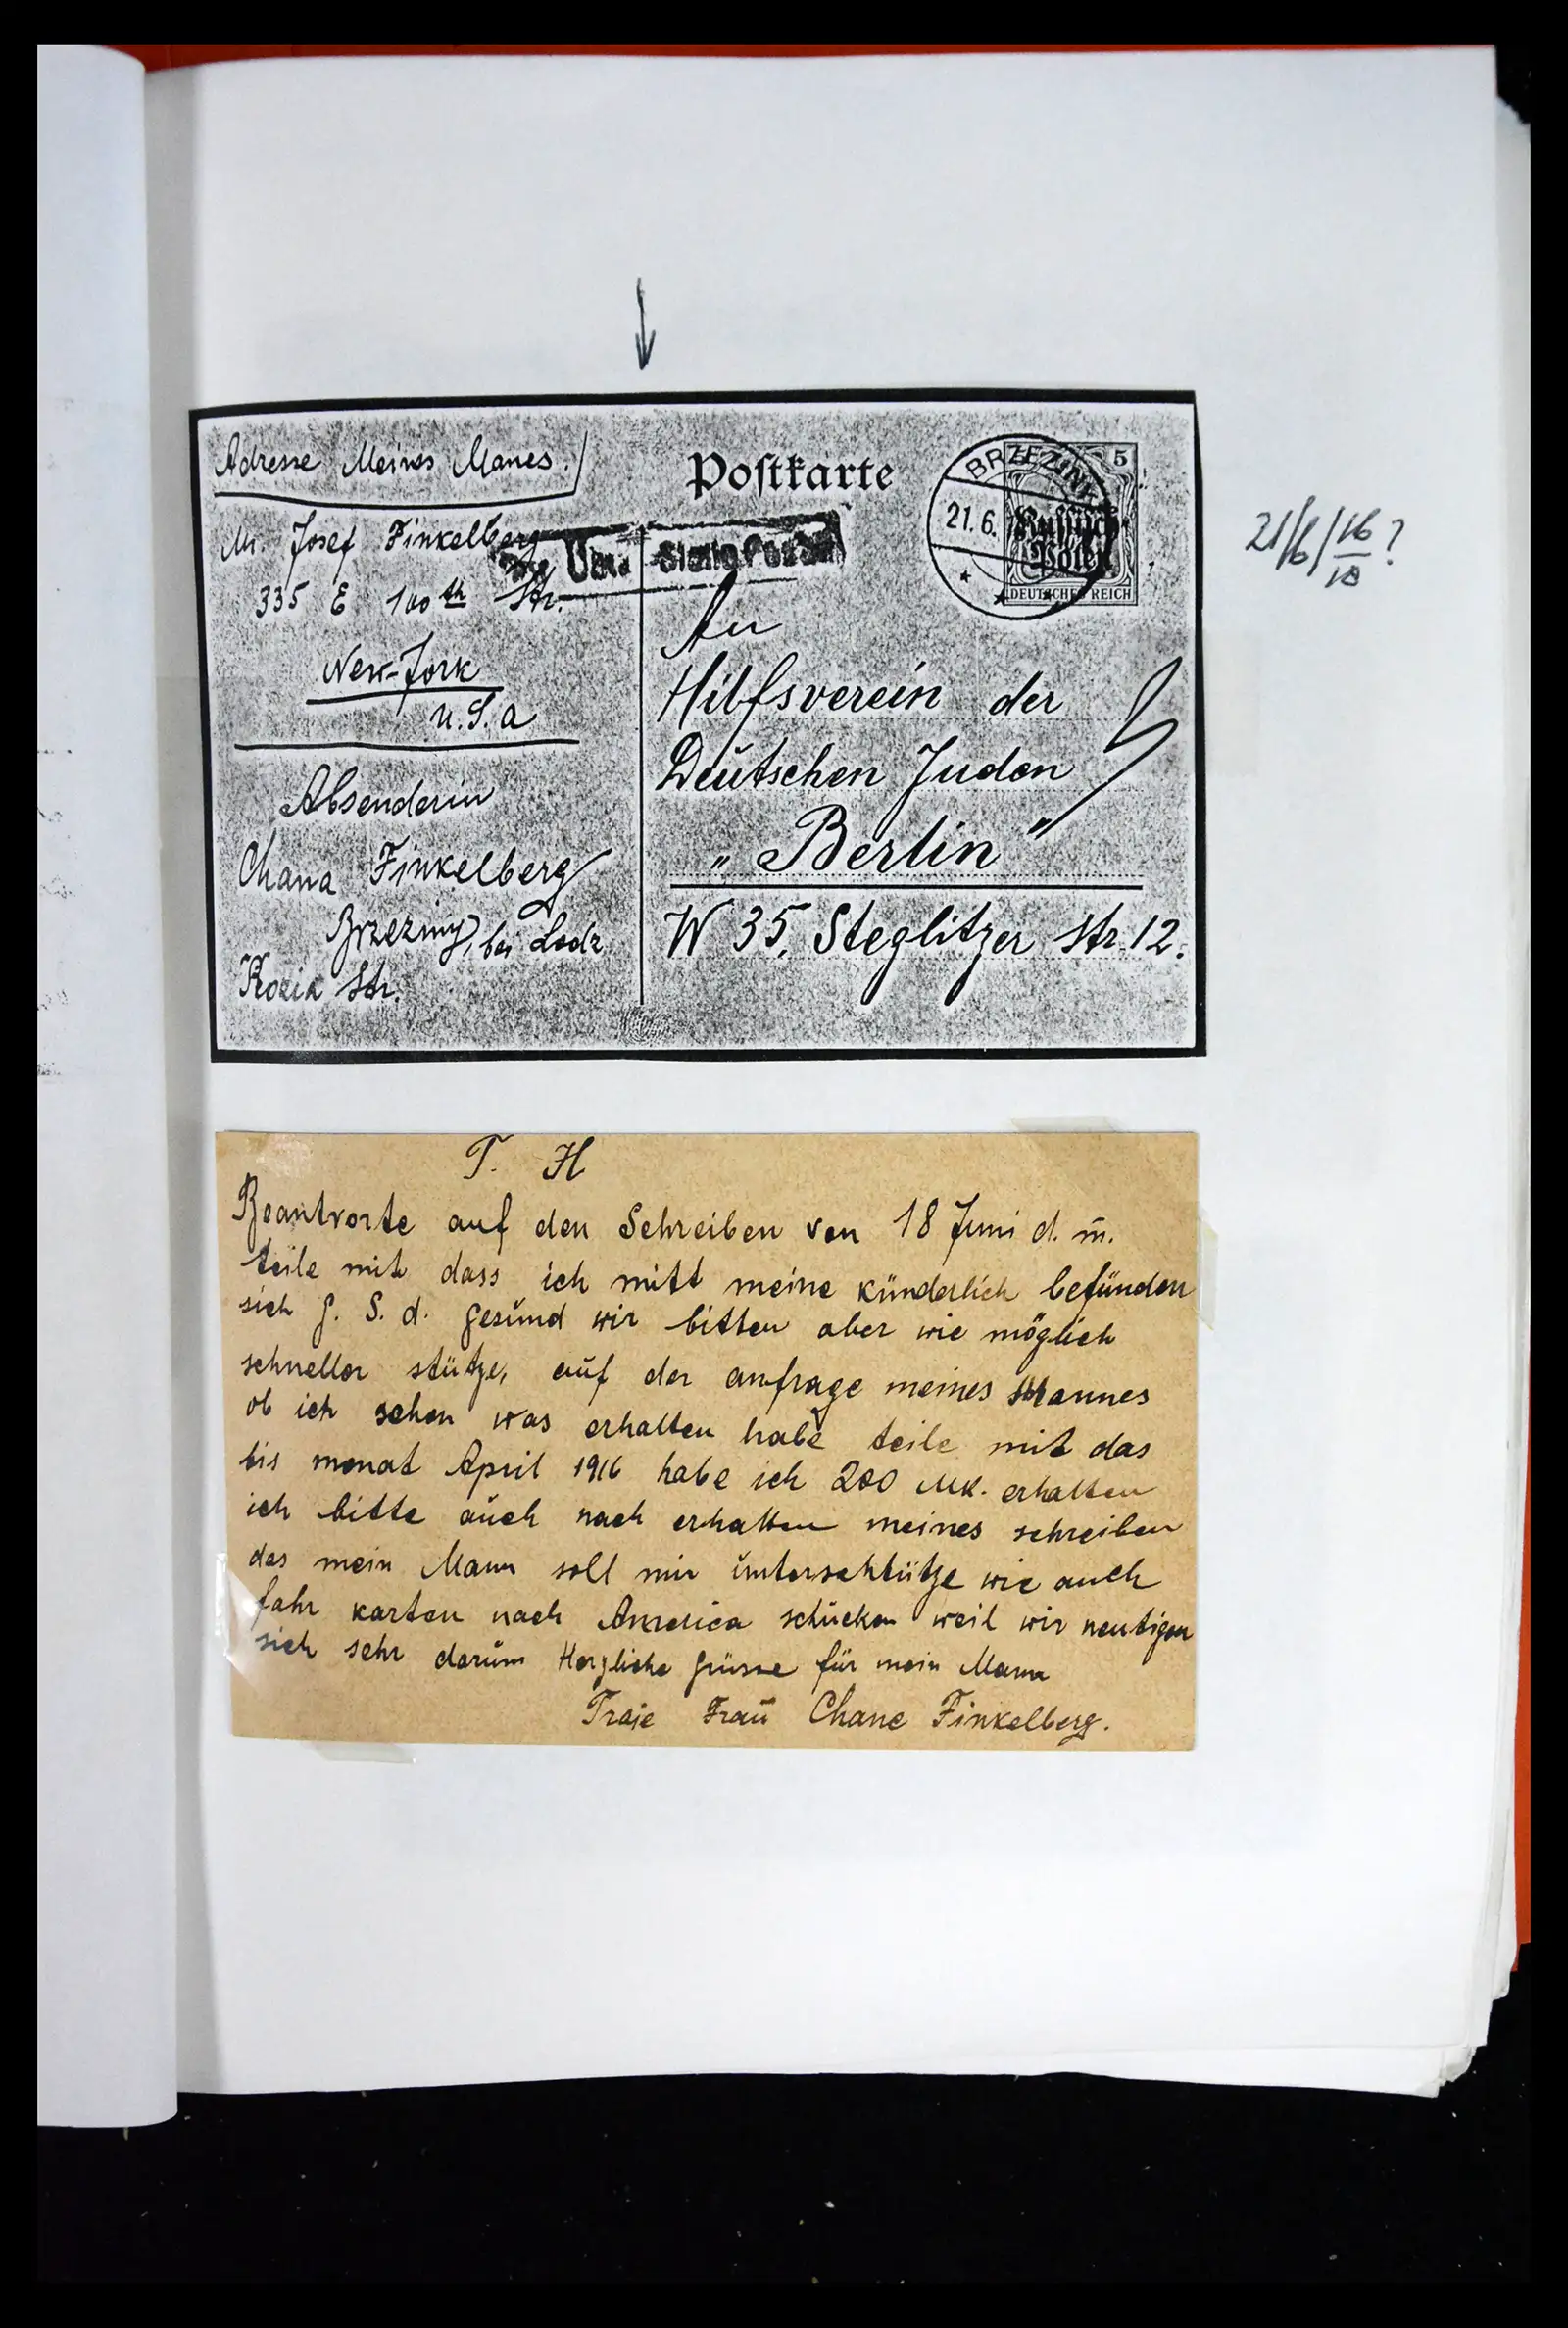 Adresse Meines Manes.
Mr. Josef Finkelberg
335 E 100th Str.
New-Jork
U.S.a
Absenderin
Chana Finkelberg
Brzeziny, bei Lodz
Str.
Postkarte
BRZEZIN
21.6.
5
Russisch
Polen
DEUTSCHES REICH
An
Hilfsverein der
Deutschen Juden
„Berlin"
W 35, Steglitzer Str. 12.
21/6/16?
18
T. H
Beantvorte auf den Schreiben von 18 Juni d. m.
teile mit dass ich mitt meine künderlich befünden
sich g. S. d. gesund wir bitten aber wie möglich
schneller stütze, auf der anfrage meines Mannes
ob ich schon was erhalten habe teile mit das
bis monat April 1916 habe ich 200 Mk. erhalten
ich bitte auch nach erhalten meines schreiben
das mein Mann soll mir unterschtütze wie auch
fahr karten nach America schücken weil wir neutigen
sich sehr darum Herzliche grüsse für mein Mann
Traje Frau Chane Finkelberg.